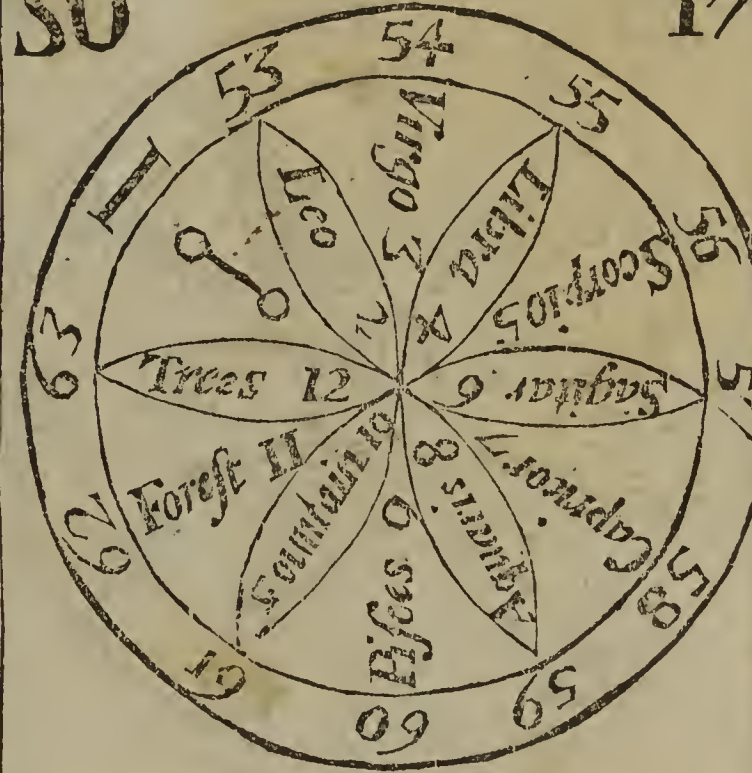 I
53
54
55
56
58
59
60
61
62
63
Leo 2
Virgo 3
Libra 4
Scorpio 5
Sagitar. 6
Capricor. 7
Aquaris 8
Piſces 9
Fountain 10
Foreſt 11
Trees 12